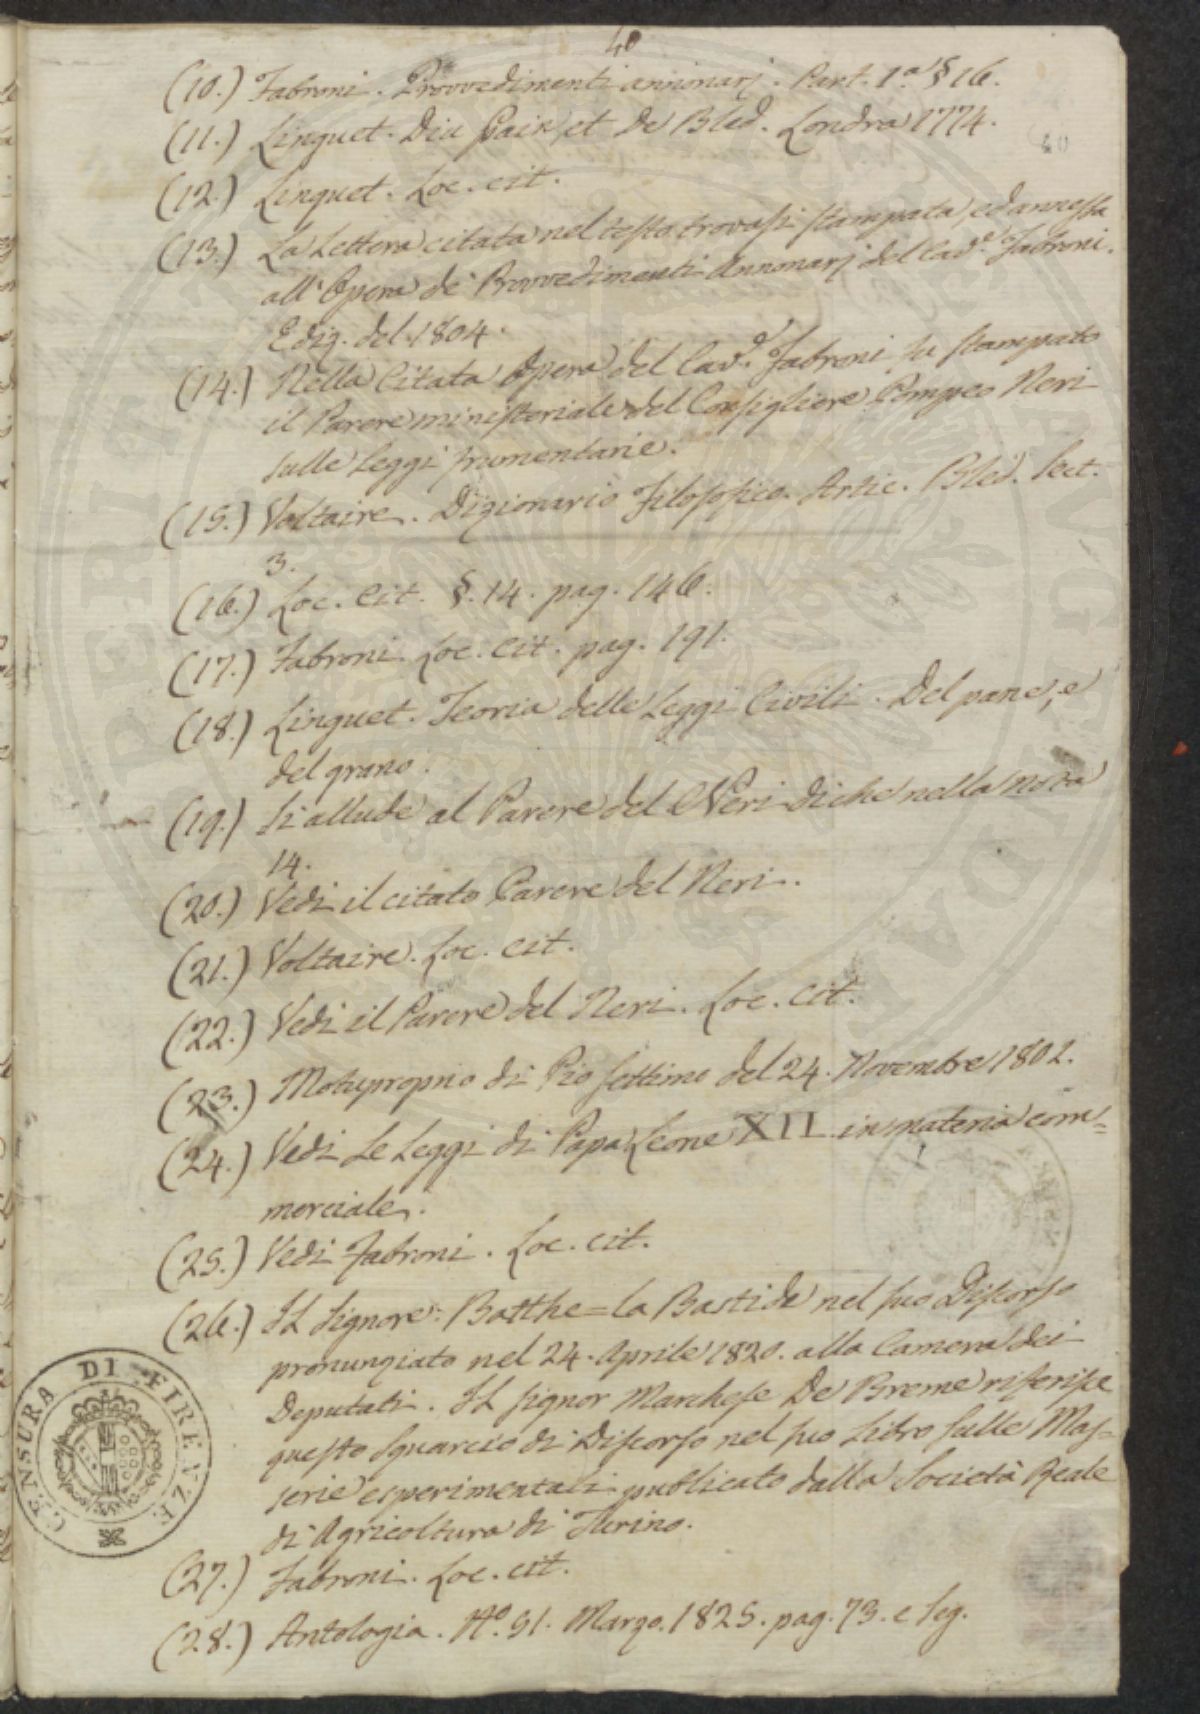 40
(10.) Fabroni. Provvedimenti annonarj. Part. 1ª § 16.
40
(11.) Linguet. Diu Pain et de Bled. Londra 1774.
(12.) Linguet. Loc. cit.
(13.) La Lettera citata nel testo trovasi stampata, ed annessa
all'Opera de' Provvedimenti Annonarj del Cav.e Fabroni.
Ediz. del 1804.
(14.) Nella Citata Opera del Cav.e Fabroni fu stampato
il Parere ministeriale del Consigliere Pompeo Neri
sulle Leggi frumentarie.
(15.) Voltaire. Dizionario Filosofico. Artic. Bled. Sect.
3.
(16.) Loc. Cit. §. 14. pag. 146.
(17.) Fabroni. Loc. cit. pag. 191.
(18.) Linguet. Teoria delle Leggi Civili. Del pane, e
del grano.
(19.) Si allude al Parere del Neri di che nella nota
14.
(20.) Vedi il citato Parere del Neri.
(21.) Voltaire. Loc. cit.
(22.) Vedi il Parere del Neri. Loc. cit.
(23.) Motuproprio di Pio Settimo del 24. Novembre 1801.
(24.) Vedi Le Leggi di Papa Leone XII in materia com=
merciale.
(25.) Vedi Fabroni. Loc. cit.
(26.) Il Signore: Batthe=la Bastide nel suo Discorso
pronunziato nel 24. Aprile 1820. alla Camera dei
Deputati. Il signor Marchese De Breme riferisce
questo Squarcio di Discorso nel suo Libro sulle Mas=
serie esperimentali pubblicato dalla Società Reale
di Agricoltura di Turino.
(27.) Fabroni. Loc. cit.
(28.) Antologia. N.o 51. Marzo. 1825. pag. 73. e seg.
CENSURA DI FIRENZE